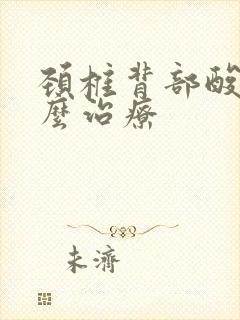 頚椎背部酸
麼治療
未濟